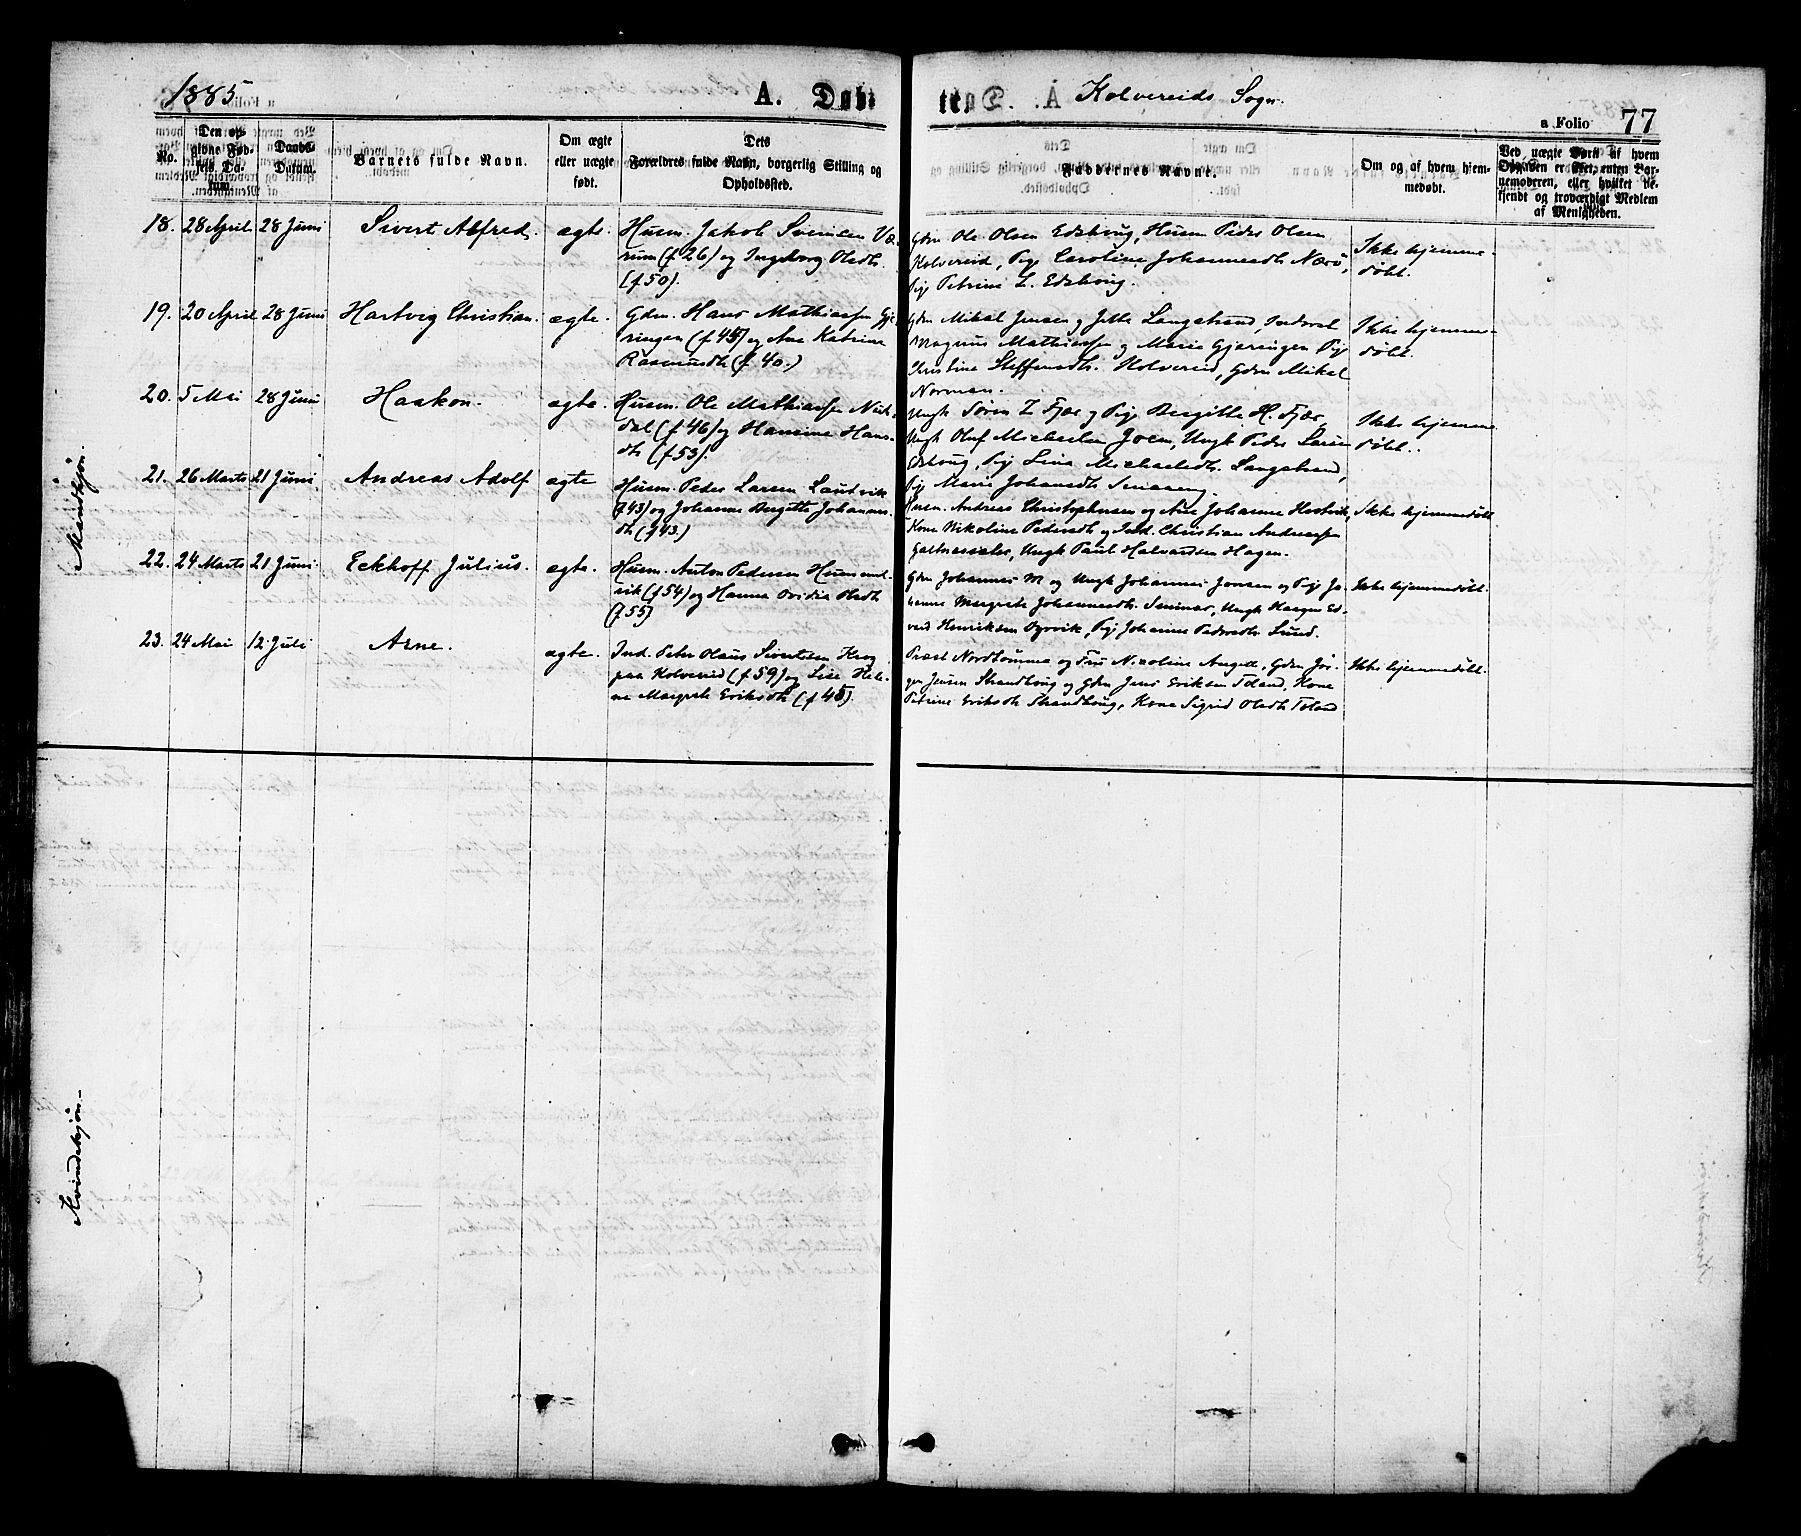 1885.
A. Døbte.
Kolvereids Sogn.
a Folio 77
No.
Den opgivne Fødsels Datum.
Daabs-Datum.
Barnets fulde Navn.
Om ægte eller uægte født.
Dets Forældres fulde Navn, borgerlig Stilling og Opholdssted.
Faddernes Navne.
Om og af hvem hjemmedøbt.
Ved uægte Barn af hvem Opgaven er skeet, enten Barnemoderen, eller hvilket bekjendt og troværdigt Medlem af Menigheden.
Mandkjøn.
18. 28 April 28 Juni Sivert Alfred. ægte.
Husm. Jakob Svensen Væ-
rum (f. 26) og Ingeborg Olsdtr.
(f. 50).
Gdm Ole Olsen Edshoug, Husm Peder Olsen
Kolvereid, Pige Caroline Johannesdtr. Nærø,
Pige Petrine L. Edshoug.
Ikke hjemme-
døbt.
19. 20 April 28 Juni Hartvig Christian. ægte.
Gdm. Hans Mathiassen Gjæ-
ringen (f. 45) og Ane Katrine
Rasmusdtr (f. 40.)
Gdm Mikal Jensen og Jette Langstrand, Inderst
Magnus Mathiassen og Marie Gjæringen Pige
Christine Steffensdtr. Kolvereid, Gdm Mikal
Norman.
Ikke hjemme-
døbt.
20. 5 Mai 28 Juni Haakon. ægte.
Husm. Ole Mathiassen
dal (f. 46) og Hansine Hans-
dtr (f. 53).
Ungk Søren Z Fjær og Pige Bergitte H. Fjær,
Ungk Oluf Michaelsen Joem, Ungk Peder Larsen
Edshoug, Pige Lina Michaelsdtr. Langstrand,
Pige Marie Johansdtr
Ikke hjemme
døbt.
21. 26 Marts 21 Juni Andreas Adolf ægte
Husm. Peder Larsen Laudvik
(f. 43) og Johanne Bergitte Johannes-
dtr (f. 43.)
Husm. Andreas Christophersen og Ane Johanne Hestvik,
Kone Nikoline Pedersdtr og Ind. Christian Andreassen
Galtnesvalen, Ungk Paul Halvardsen Hagen.
Ikke hjemmedøbt
22. 24 Marts 21 Juni Eckhoff Julius. ægte.
Husm. Anton Pedersen
vik (f 54) og Hanna Ovidia Olsdtr
(f. 55)
Gdm Johannes M og Ungk Johannes Jensen og Pige Jo-
hanne Margrete Johannesdtr. Ungk Haagen Ed-
vard Henriksen Dyrvik, Pige Johanne Pedersdtr Lund.
Ikke hjemmedøbt.
23. 24 Mai 12 Juli Arne. ægte.
Ind. Peter Olaus Sivertsen Krog
paa Kolvereid (f 59) og Lise Hele-
ne Margrete Eriksdtr (f 45).
Præst Nordtømme og Fru Nicoline Augusta, Gdm Jør-
gen Jensen Strandhoug og Gdm Jens Eriksen Teland, Kone
Petrine Eriksdtr Strandhoug, Kone Sigrid Olsdtr Teland
Ikke hjemmedøbt.
Kvindekjøn.